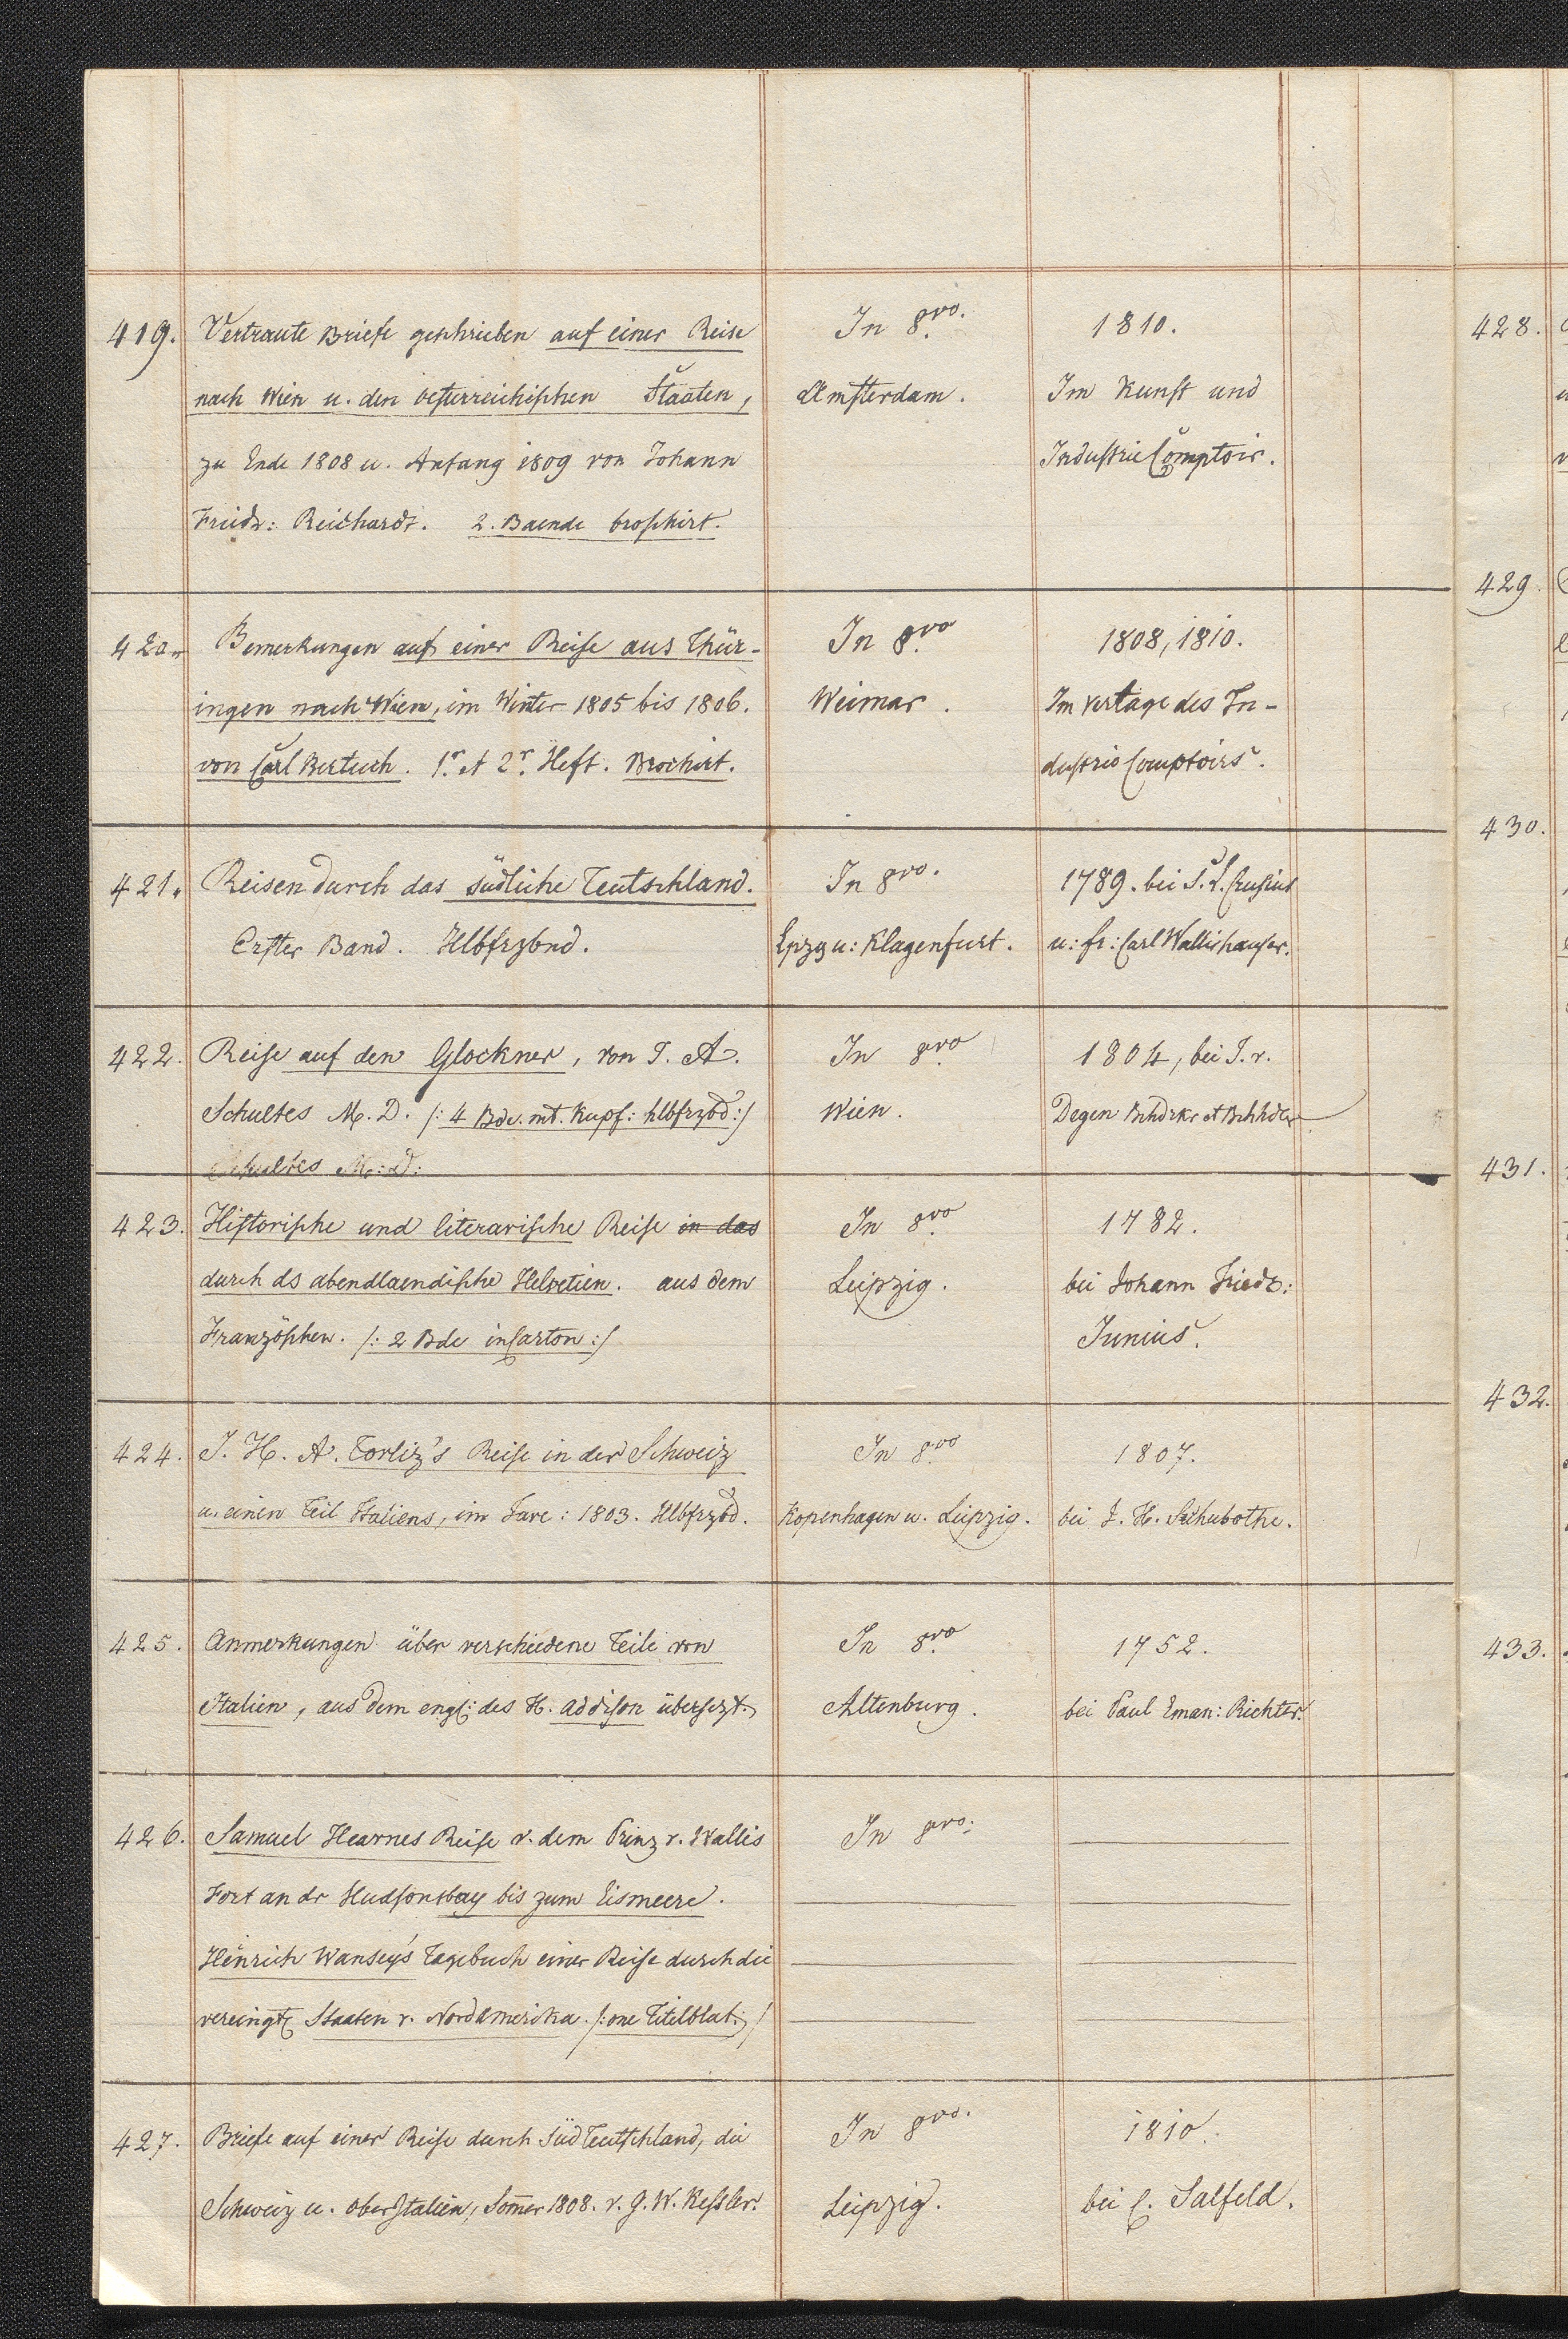 419. Vertraute Briefe geschrieben auf einer Reise In 8vo. 1810.
nach Wien u. den oesterreichischen Staaten, Amsterdam. Im Kunst und
zu Ende 1808 u. Anfang 1809 von Johann Industrie Comptoir.
Friedr: Reichardt. 2. Baende broschirt.
420. Bemerkungen auf einer Reise aus Thür- In 8vo 1808, 1810.
ingen nach Wien, im Winter 1805 bis 1806. Weimar. Im Verlage des In-
von Carl Bertuch. 1r. et 2r. Heft. Brochirt. dustrie Comptoirs.
421. Reisen durch das südliche Teutschland. In 8vo. 1789. bei S. L. Crusius
Erster Band. Hlbfrzbnd. Lpzg u: Klagenfurt. u: fr: Carl Wallishauser.
422. Reise auf den Glockner, von J. A. In 8vo 1804, bei J. v.
Schultes M. D. /: 4 Bde. mt. Kupf: hlbfrzbd :/ Wien. Degen Bchdrkr et Bchhdler
Schultes M: D:
423. Historische und literarische Reise in das In 8vo 1782.
durch ds abendlaendische Helvetien. aus dem Leipzig. bei Johann Friedr:
Französchen. /: 2 Bde in Carton :/ Junius.
424. J. H. A. Torliz's Reise in der Schweiz In 8vo 1807.
u. einen Teil Italiens, im Jare: 1803. Hlbfrzbd. Kopenhagen u. Leipzig. bei J. H. Schubothe.
425. Anmerkungen über verschiedene Teile von In 8vo 1752.
Italien, aus dem engl: des H. Addison übersezt. Altenburg. bei Paul Eman: Richter.
426. Samuel Hearnes Reise v. dem Prinz v. Wallis In 8vo:
Fort an dr Hudsonsbay bis zum Eismeere.
Henrich Wansey's Tagebuch einer Reise durch die
vereingt Staaten v. Nordamerika. /: one Titelblat :/
427. Briefe auf einer Reise durch Süd Teutschland, die In 8vo. 1810.
Schweiz u. Ober Italien, Som̄er 1808. v. G. W. Kessler. Leipzig. bei C. Salfeld.
428.
429.
430.
431.
432.
433.